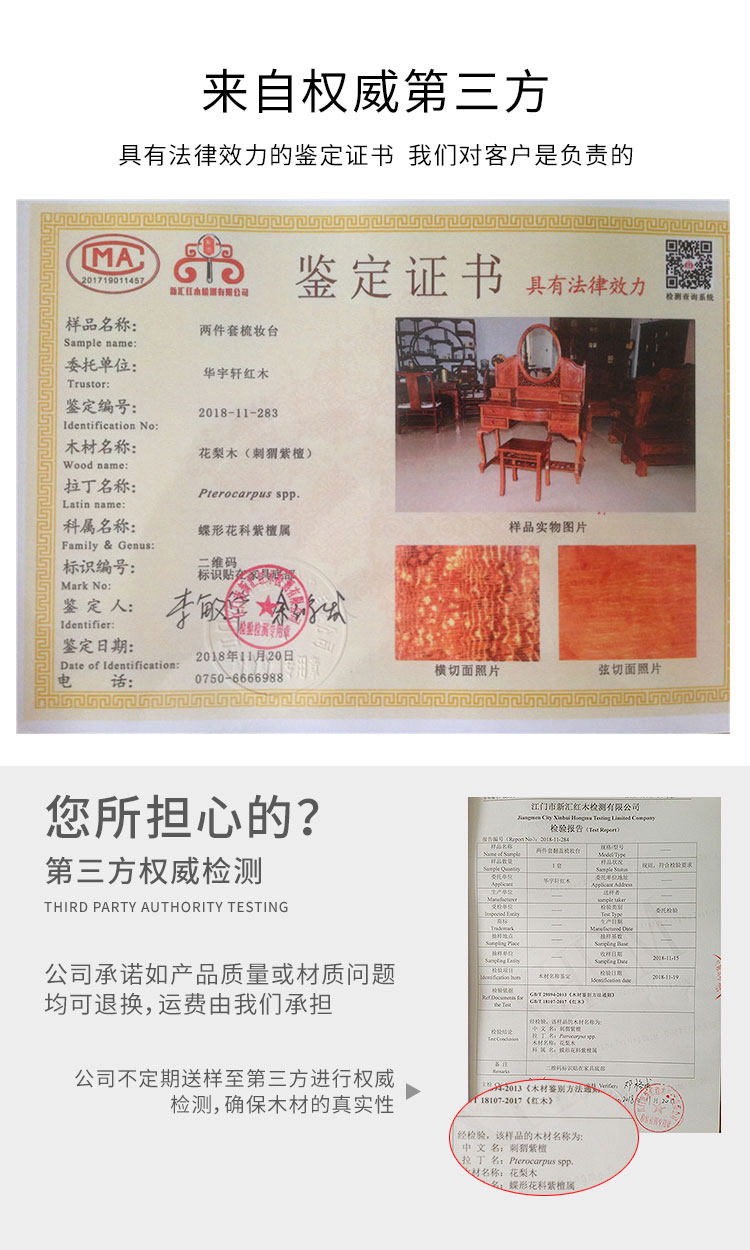 来自权威第三方
具有法律效力的鉴定证书 我们对客户是负责的
CMA
201719011457
新汇红木检测有限公司
鉴定证书 具有法律效力
检测查询系统
样品名称: 两件套梳妆台
Sample name:
委托单位: 华宇轩红木
Trustor:
鉴定编号: 2018-11-283
Identification No:
木材名称: 花梨木（刺猬紫檀）
Wood name:
拉丁名称: Pterocarpus spp.
Latin name:
科属名称: 蝶形花科紫檀属
Family & Genus:
标识编号: 二维码
标识贴在家具底部
Mark No:
鉴 定 人:
Identifier:
检验检测专用章
鉴定日期: 2018年11月20日
Date of Identification:
电 话: 0750-6666988
样品实物图片
横切面照片
弦切面照片
您所担心的?
第三方权威检测
THIRD PARTY AUTHORITY TESTING
公司承诺如产品质量或材质问题
均可退换,运费由我们承担
公司不定期送样至第三方进行权威
检测,确保木材的真实性
江门市新汇红木检测有限公司
Jiangmen City Xinhui Hongmu Testing Limited Company
检验报告 (Test Report)
报告编号 (Report No): 2018-11-284
样品名称 两件套翻盖梳妆台 规格/型号
Name of Sample Model/Type
样品数量 1套 样品状况 规矩，符合检验要求
Sample Quantity Sample Status
委托单位 华宇轩红木 委托单位地址
Applicant Applicant Address
生产单位 送样者
Manufacturer sample taker
受检单位 检验类别 委托检验
Inspected Entity Test Type
商标 生产日期
Trademark Manufactured Date
抽样地点 抽样基数
Sampling Place Sampling Base
抽样单位 收样日期 2018-11-15
Sampling Entity Sampling Date
检验项目 木材名称鉴定 检验日期 2018-11-19
Identification Item Identification date
检验依据
Ref.Documents for
the Test
GB/T 29894-2013《木材鉴别方法通则》
GB/T 18107-2017《红木》
检验结论
Test Conclusion
经检验，该样品的木材名称为:
中 文 名: 刺猬紫檀
拉 丁 名: Pterocarpus spp.
木材名称: 花梨木
科 属 名: 蝶形花科紫檀属
备 注 二维码标识贴在家具底部
Remarks
Verifier:
94-2013《木材鉴别方法通则
T 18107-2017《红木》
经检验，该样品的木材名称为:
中 文 名: 刺猬紫檀
拉 丁 名: Pterocarpus spp.
材名称: 花梨木
名: 蝶形花科紫檀属